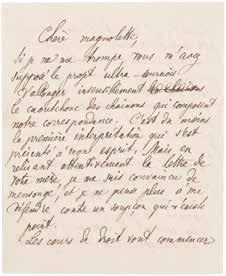 Chère magnolette,
Si je ne me trompe vous m'avez
supposé le projet ultra-sournois
d'allonger insensiblement
le caoutchouc des chaînons qui composent
notre correspondance. C'est du moins
la première interprétation qui s'est
présenté à mon esprit. Mais en
relisant attentivement la lettre de
votre mère, je me suis convaincu de
mensonge, et je ne peux plus à me
défendre contre un soupçon qui n'existe
point.
Les cours de droit vont commencer